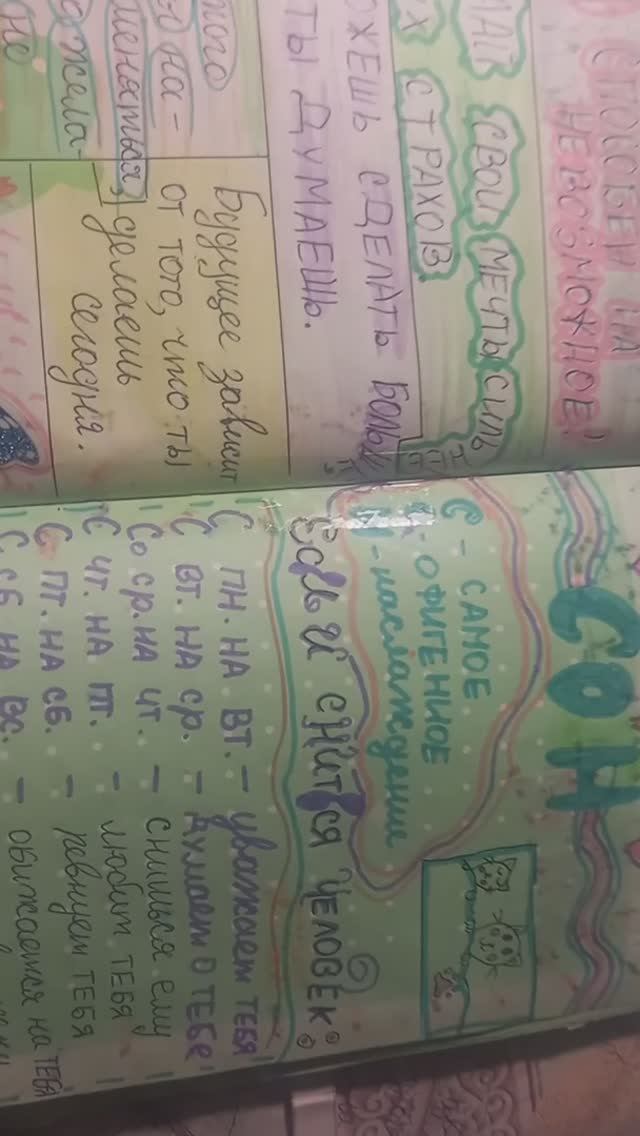 СПОСОБЕН НА
НЕВОЗМОЖНОЕ!
СВОИ МЕЧТЫ СИЛЬ
СТРАХОВ.
СДЕЛАТЬ БОЛЬ
ТЫ ДУМАЕШЬ.
на-
Будущее зависит
от того, что ты
делаешь
сегодня.
СОН
С - САМОЕ
О - ОФИГЕННОЕ
Н - наслаждение
Если снится человек:
С ПН. НА ВТ. - уважает ТЕБЯ
С ВТ. НА СР. - думает о ТЕБЕ
Со СР. НА ЧТ. - снишься ему
С ЧТ. НА ПТ. - любит ТЕБЯ
С ПТ. НА СБ. - ревнует ТЕБЯ
С СБ. НА ВС. - обижается на ТЕБЯ